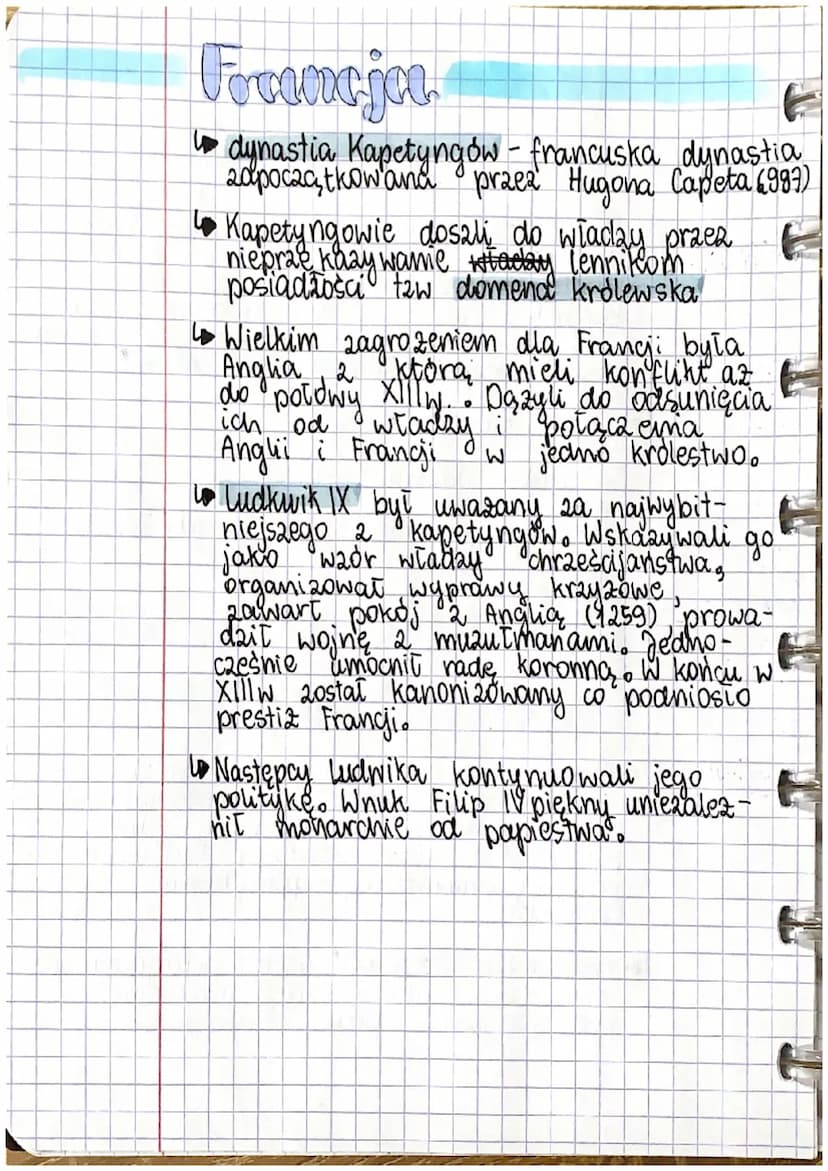 Francja
↳ dynastia Kapetyngów - francuska dynastia
zapoczątkowana przez Hugona Capeta (987)
↳ Kapetyngowie doszli do władzy przez
nieprzekazywanie władzy lennikom
posiadłości tzw domena królewska
↳ Wielkim zagrożeniem dla Francji była
Anglia z którą mieli konflikt aż
do połowy XIIIw. Dążyli do odsunięcia
ich od władzy i połączenia
Anglii i Francji w jedno królestwo.
↳ Ludkwik IX był uważany za najwybit-
niejszego z kapetyngów. Wskazywali go
jako wzór władzy chrześcijaństwa,
organizował wyprawy krzyżowe,
zawarł pokój z Anglią (1259), prowa-
dził wojnę z muzułmanami. Jedno-
cześnie umocnił radę koronną. W końcu w
XIIIw został kanonizowany co podniosło
prestiż Francji.
↳ Następcy Ludwika kontynuowali jego
politykę. Wnuk Filip IV piękny uniezależ-
nił monarchie od papiestwa.